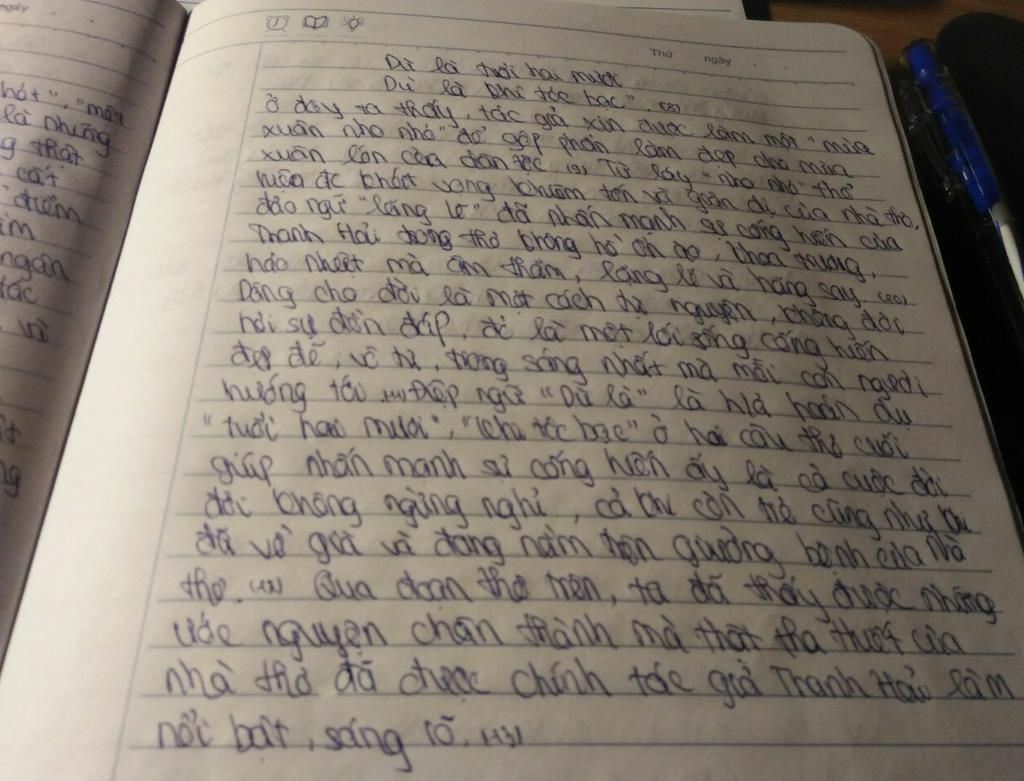 ngày
Thứ ngày
hót", "một
là những
g thật
cất
điểm
ìm
ngân
tác
vì
ất
ng
Dù là tuổi hai mươi
Dù là khi tóc bạc". (8)
Ở đây ta thấy, tác giả xin được làm một "mùa
xuân nho nhỏ" để góp phần làm đẹp cho mùa
xuân lớn của dân tộc (9) Từ láy "nho nhỏ" thể
khát vọng khiêm tốn và giản dị của nhà thơ,
đảo ngữ "lặng lẽ" đã nhấn mạnh sự cống hiến của
Thanh Hải trong thơ không hề ồn ào, khoa trương,
háo nhiệt mà âm thầm, lặng lẽ và hăng say. (10)
Dâng cho đời là một cách tự nguyện, không đòi
hỏi sự đền đáp, đó là một lối sống cống hiến
đẹp đẽ, vô tư, trong sáng nhất mà mỗi con người
hướng tới (11) Điệp ngữ "Dù là" là hoán dụ
"tuổi hai mươi", "khi tóc bạc" ở hai câu thơ cuối
giúp nhấn mạnh sự cống hiến ấy là cả cuộc đời
đời không ngừng nghỉ, cả khi còn trẻ cũng như khi
đã về già và đang nằm trên giường bệnh của nhà
thơ. (12) Qua đoạn thơ trên, ta đã thấy được những
ước nguyện chân thành mà thật tha thiết của
nhà thơ đã được chính tác giả Thanh Hải làm
nổi bật, sáng rõ. (13)